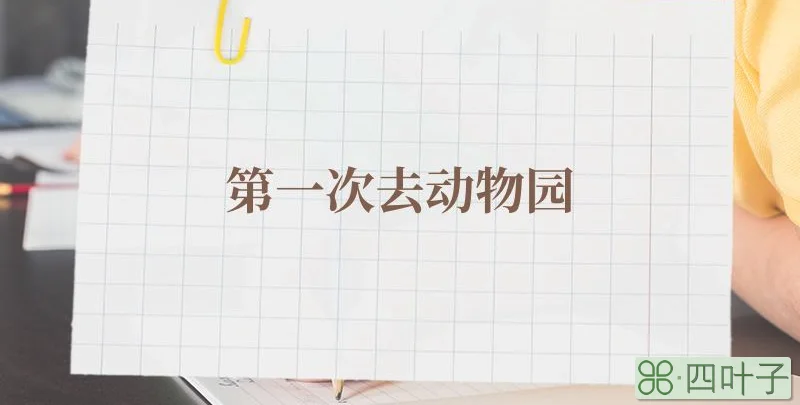 第一次去动物园
⌘·四叶子